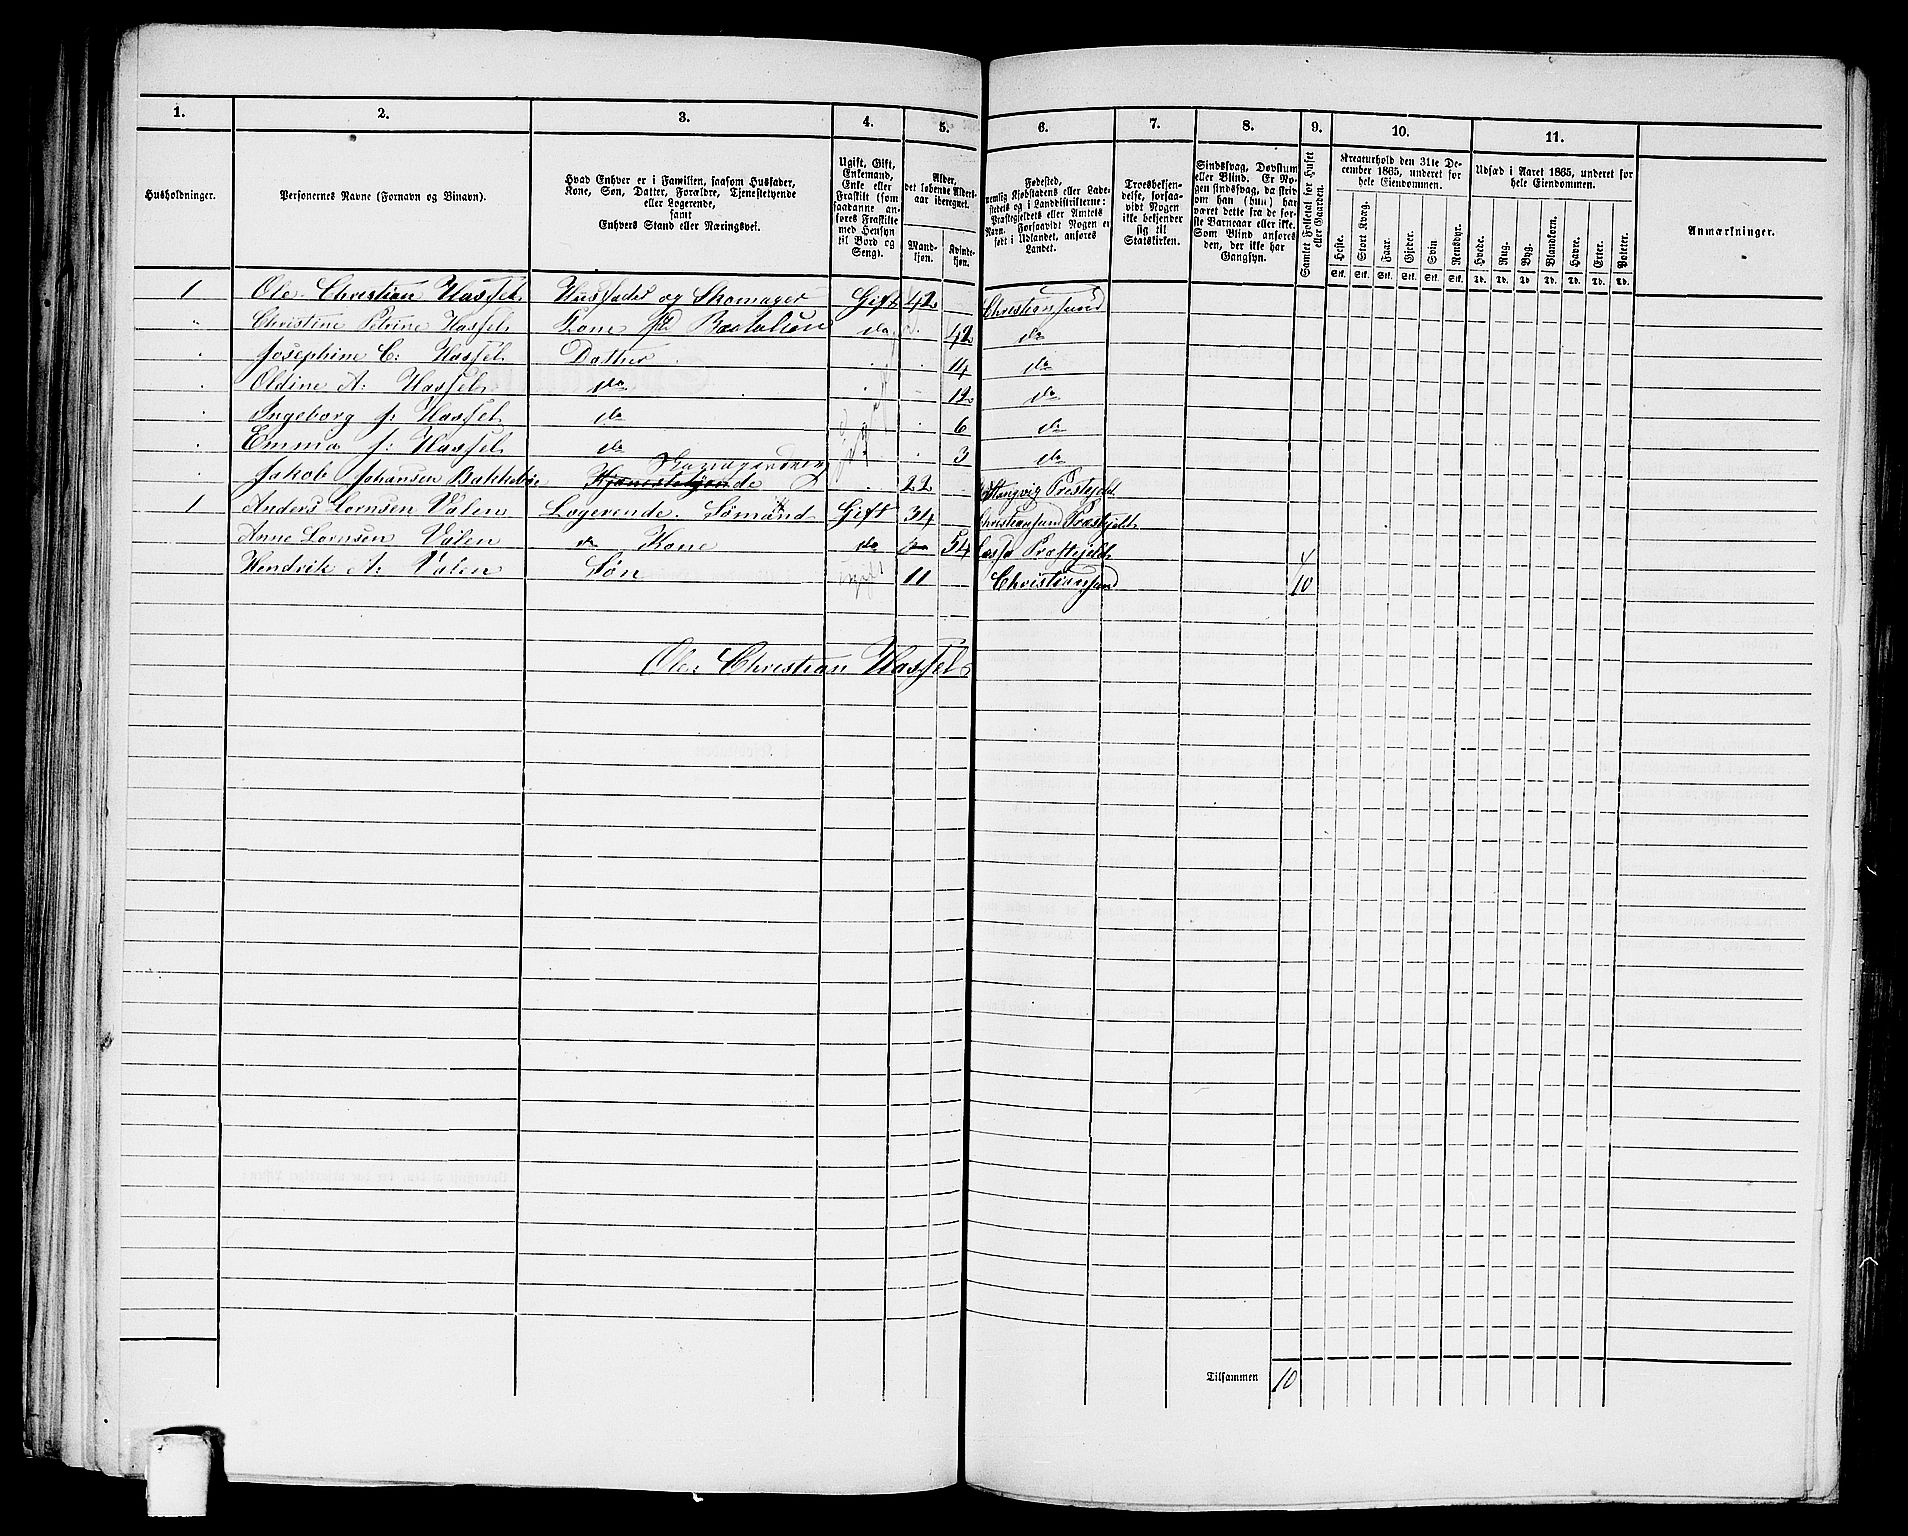 1. 2. 3. 4. 5. 6. 7. 8. 9. 10. 11.
Husholdninger.
Personernes Navne (Fornavn og Binavn).
Hvad Enhver er i Familien, saasom Husfader,
Kone, Søn, Datter, Forældre, Tjenestetyende
eller Logerende,
samt
Enhvers Stand eller Næringsvei.
Ugift, Gift,
Enkemand,
Enke eller
Fraskilt (som
saadanne an-
føres Fraskilte
med Hensyn
til Bord og
Seng).
Alder,
det løbende Alders-
aar iberegnet.
Mand-
kjøn.
Kvinde-
kjøn.
Fødested,
nemlig Kjøbstadens eller Lade-
stedets og i Landdistrikterne:
Præstegjeldets eller Amtets
Navn. Forsaavidt Nogen er
født i Udlandet, anføres
Landet.
Troesbekjen-
delse, forsaa-
vidt Nogen
ikke bekjender
sig til
Statskirken.
Sindssvag, Døvstum
eller Blind. Er No-
gen sindssvag, da skriv
om han (hun) har
været dette fra de før-
ste Barneaar eller ikke.
Som Blind anføres
den, der ikke har
Gangsyn.
Samlet Folketal for Huset
eller Gaarden.
Kreaturhold den 31te De-
cember 1865, underet for
hele Eiendommen.
Heste. Stort Kvæg. Faar. Gjeder. Svin Rensdyr.
Stk. Stk. Stk. Stk. Stk. Stk.
Udsæd i Aaret 1865, underet for
hele Eiendommen.
Hvede. Rug. Byg. Blandkorn. Havre. Erter. Poteter.
Td. Td. Td Td. Td. Td. Td.
Anmærkninger.
1 Ole Christian Hassel Husfader og Skomager Gift 42 Christiansund
" Christine Petrine Hassel Kone do 42 do
Josephine C: Hassel Datter 14 do
Oldine A: Hassel do 12 do
Ingeborg J: Hassel do 6 do
Emma J: Hassel do 3 do
Jakob Johansen Bakkebøe 22 Stangvig Prestejeld
1 Anders Lornsen Valen Logerende. Sømand Gift 34 Christiansund Præstejeldt
Anne Lornsen Valen do Kone do 54 Præstejeldt
Hendrik A: Valen Søn ugift 11 Christiansund 10
Ole Christian Hassel
Tilsammen 10